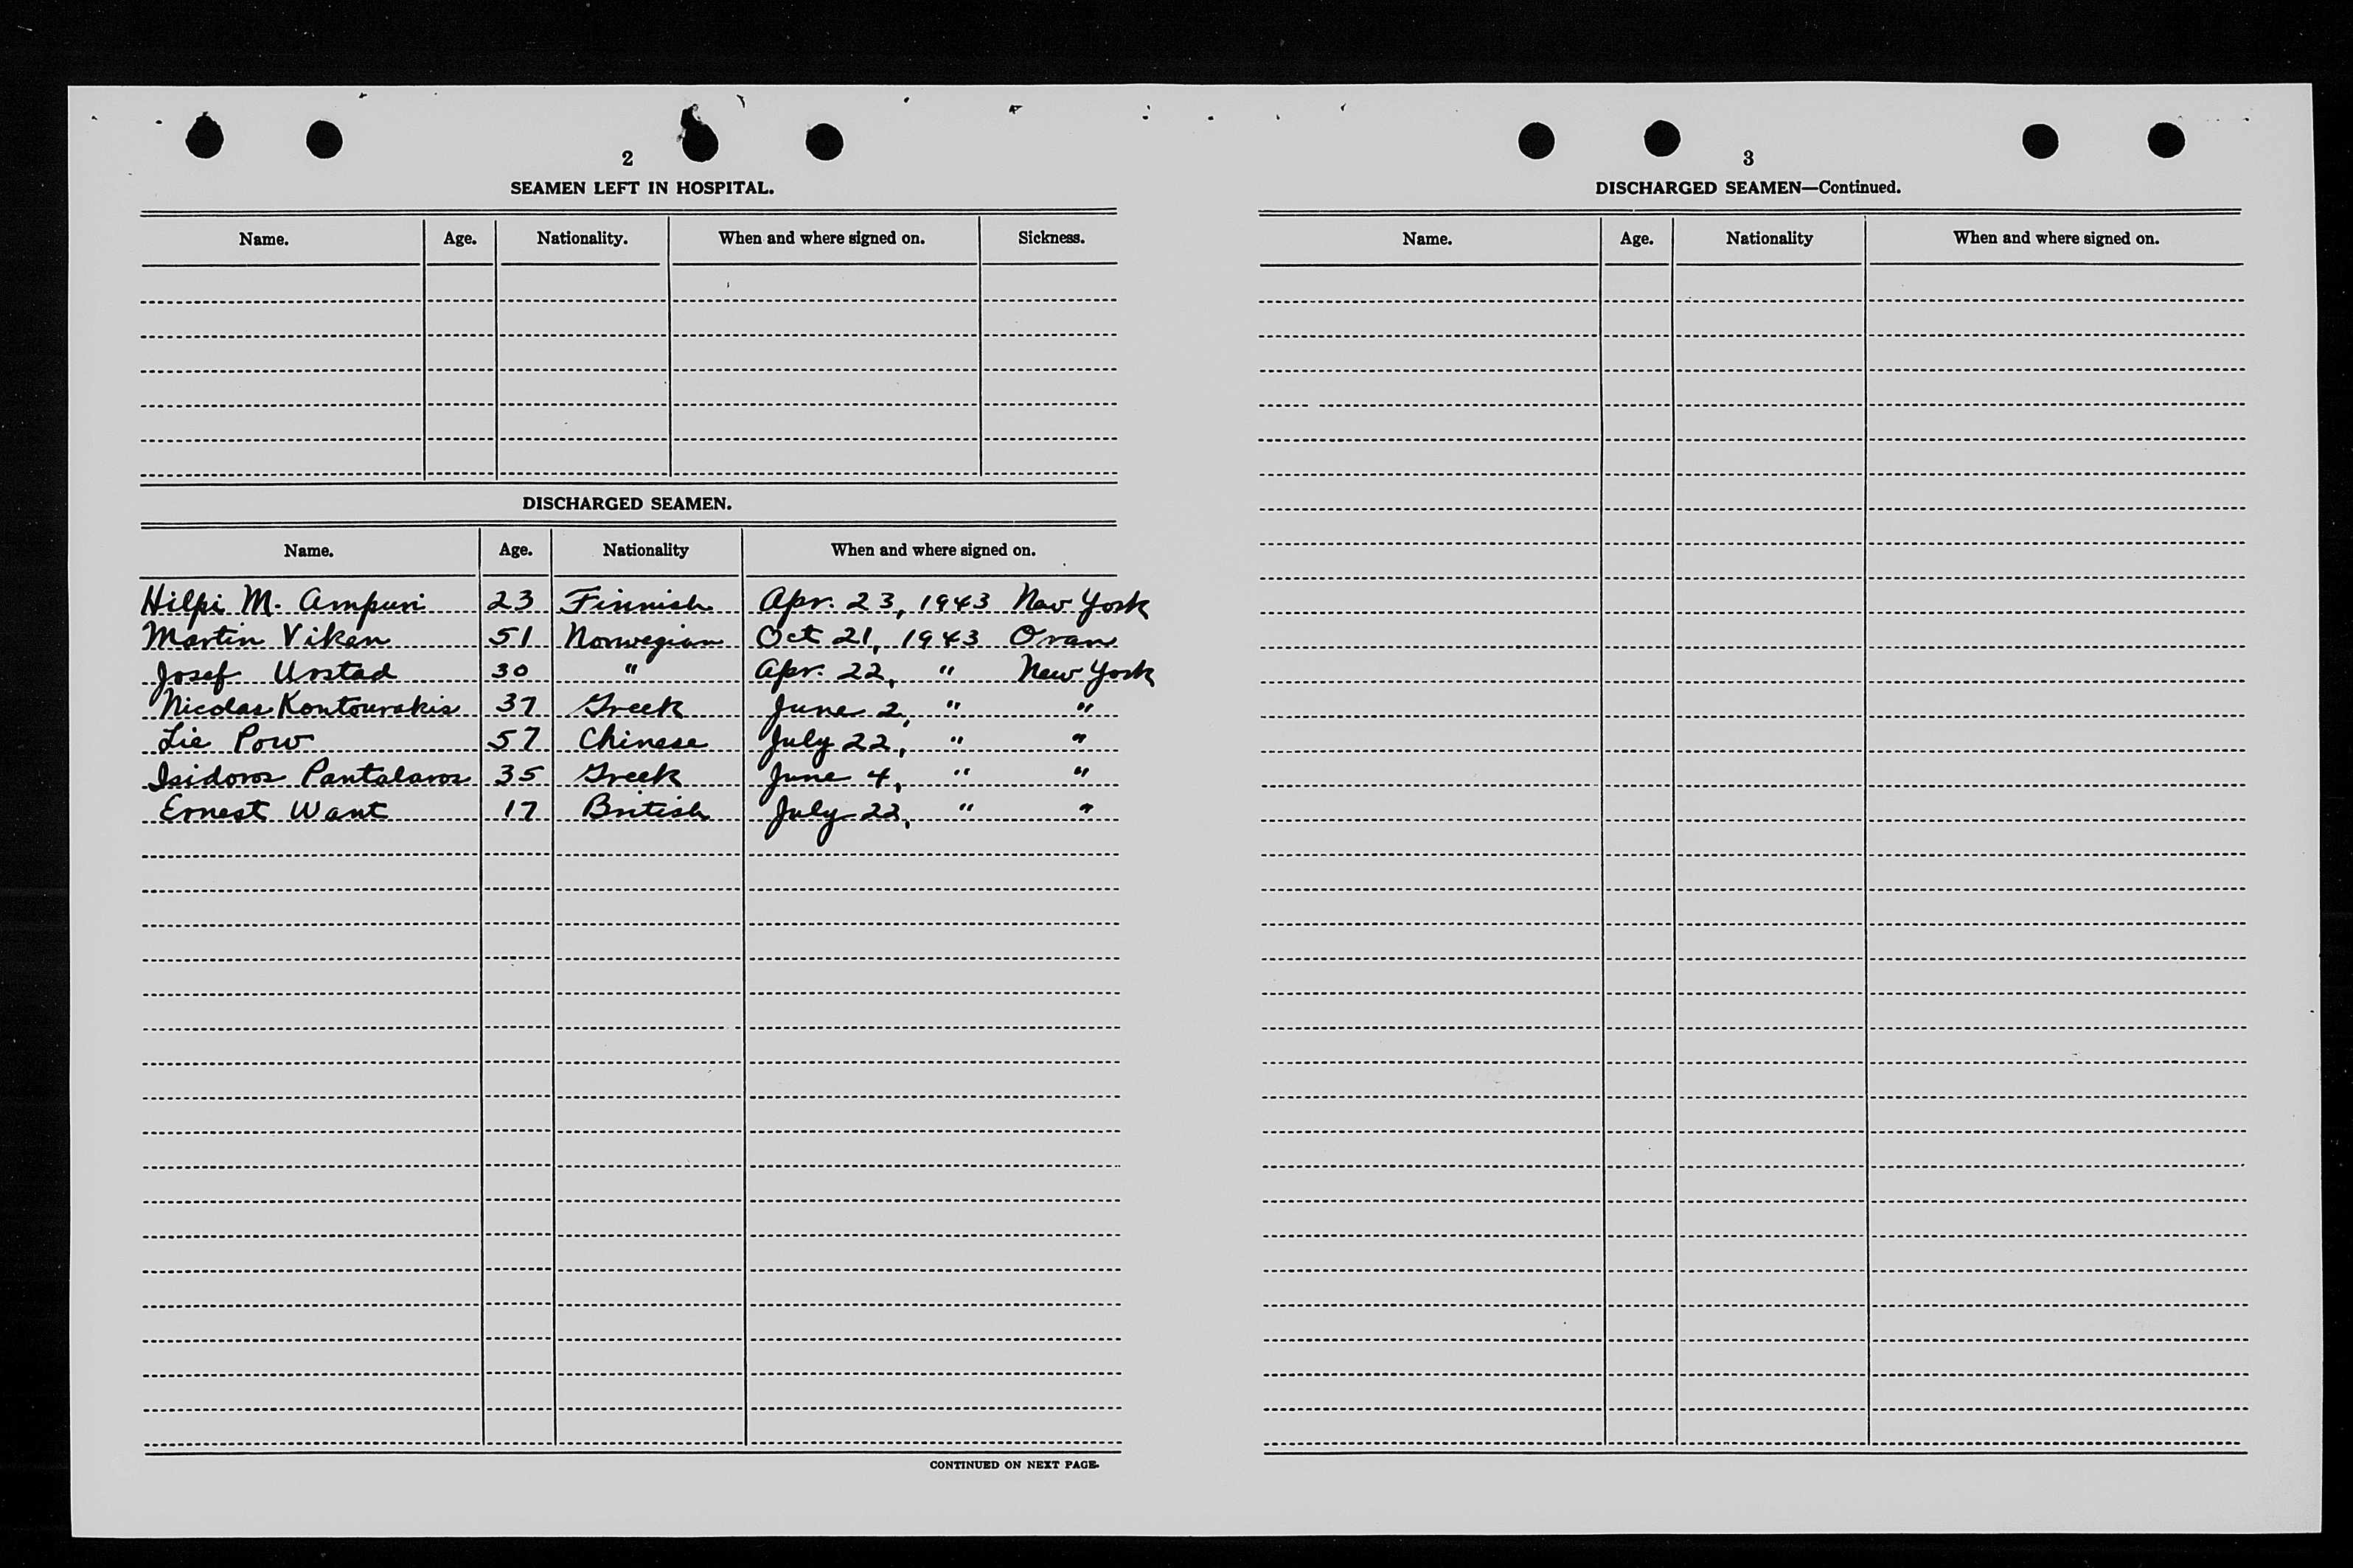 2
SEAMEN LEFT IN HOSPITAL.
Name. Age. Nationality. When and where signed on. Sickness.
DISCHARGED SEAMEN.
Name. Age. Nationality When and where signed on.
Hilpi M. Ampuri 23 Finnish Apr. 23, 1943 New York
Martin Viken 51 Norwegian Oct 21, 1943 Oran
Josef Urstad 30 " Apr. 22, " New York
Nicolas Kontourakis 37 Greek June 2, " "
Lie Pow 57 Chinese July 22, " "
Isidoros Pantalaros 35 Greek June 4, " "
Ernest Want 17 British July 22, " "
CONTINUED ON NEXT PAGE.
3
DISCHARGED SEAMEN—Continued.
Name. Age. Nationality When and where signed on.